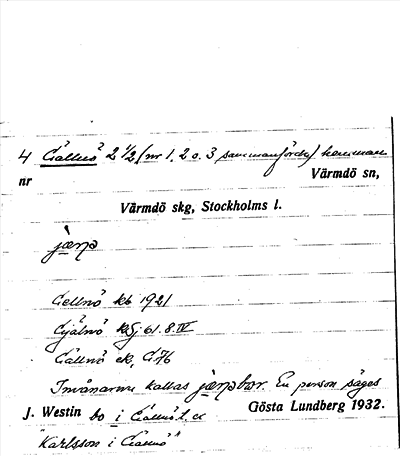 4 Gällnö 2 1/2 (nr 1, 2 o. 3 sammanförda) hemman
nr Värmdö sn,
Värmdö skg, Stockholms l.
Gellnö kb 1921
Gjälnö
Gällnö ek,
Invånarna kallas En person säges
J. Westin bo i Gällnö Gösta Lundberg 1932.
"Karlsson i Gällnö"